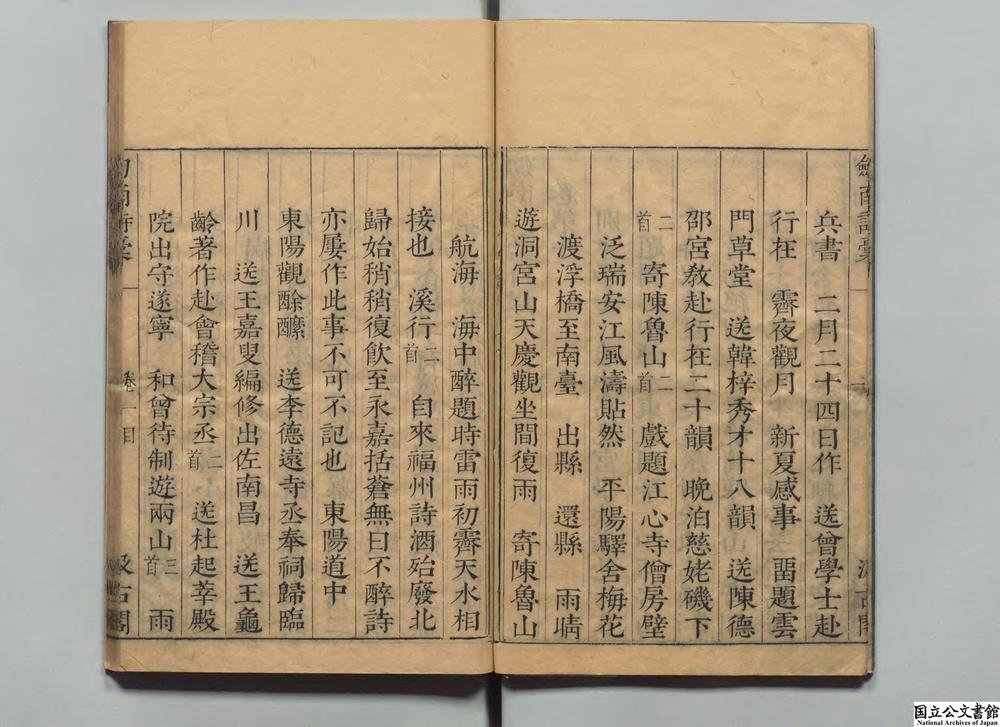 劒南詩稾
兵書　二月二十四日作　送曾學士赴
行在　霽夜觀月　新夏感事　畱題雲
門草堂　送韓梓秀才十八韻　送陳德
邵宮敎赴行在二十韻　晚泊慈姥磯下
二首　寄陳魯山二首　戲題江心寺僧房壁
泛瑞安江風濤貼然　平陽驛舍梅花
渡浮橋至南臺　出縣　還縣　雨晴
遊洞宮山天慶觀坐間復雨　寄陳魯山
航海　海中醉題時雷雨初霽天水相
接也　溪行二首　自來福州詩酒殆廢北
歸始稍稍復飲至永嘉括蒼無日不醉詩
亦屢作此事不可不記也　東陽道中
東陽觀酴醾　送李德遠寺丞奉祠歸臨
川　送王嘉叟編修出佐南昌　送王龜
齡著作赴會稽大宗丞二首　送杜起莘殿
院出守遂寧　和曾待制遊兩山三首　雨
卷一目
汲古閣
国立公文書館
National Archives of Japan